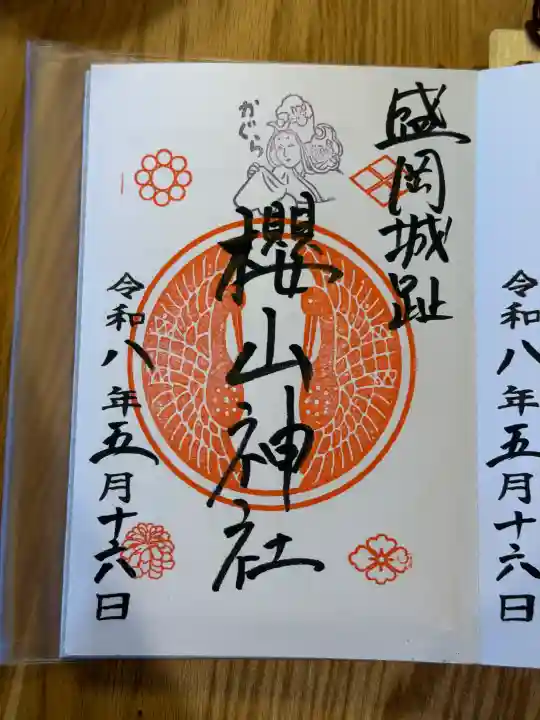 盛岡城趾
かぐら
櫻山神社
令和八年五月十六日
令和八年五月十六日